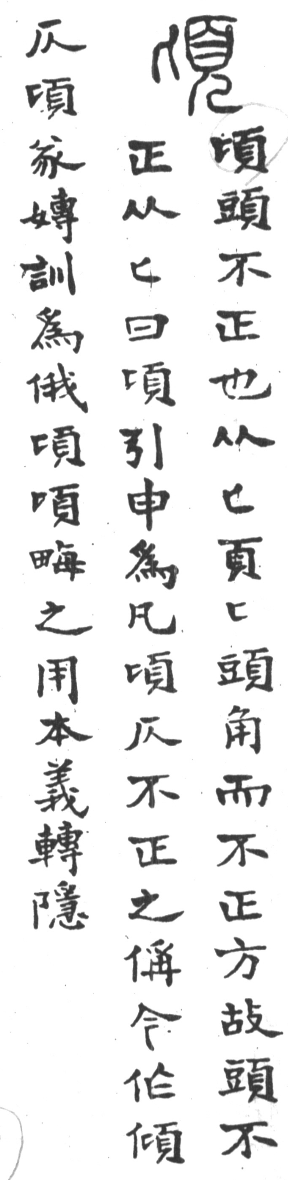 頃
頃頭不正也从匕頁匕頭角而不正方故頭不
正从匕曰頃引申爲凡頃仄不正之偁今作傾
仄頃㒸嫥訓爲俄頃頃畮之用本義轉隱